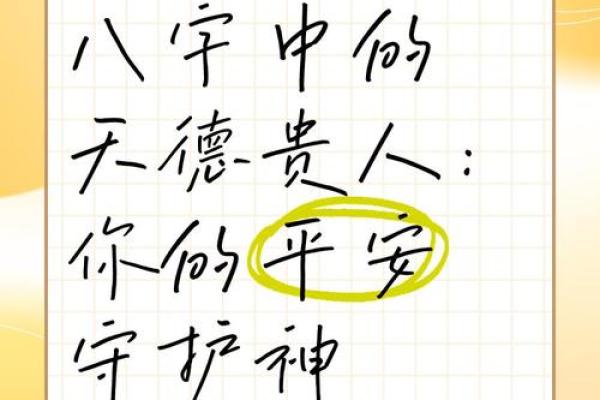 八字中的
天德贵人:
你的平安
守护神